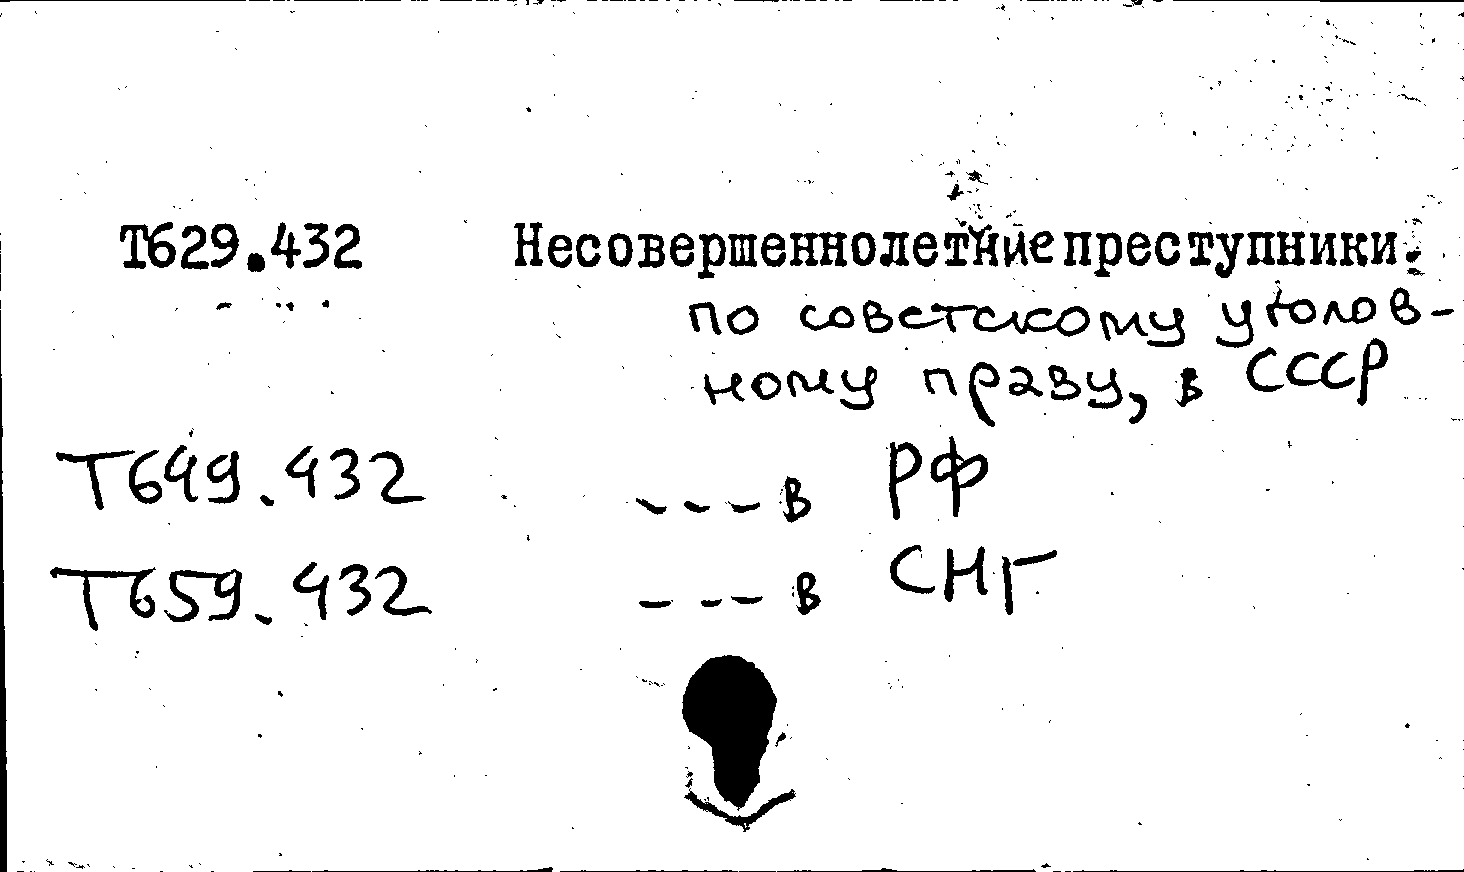 Т629.432 Несовершеннолетние преступники.
по советскому уголов-
ному праву, в СССР
Т649.432 - - - в РФ
Т659.432 - - - в СНГ